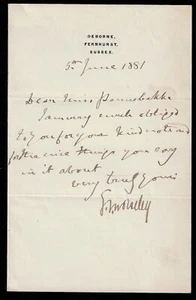 OSBORNE,
FERNHURST,
SUSSEX.
5 June 1881
Dear
I am very much obliged
to you for your kind note and
for the nice things you say
in it about
very truly yours